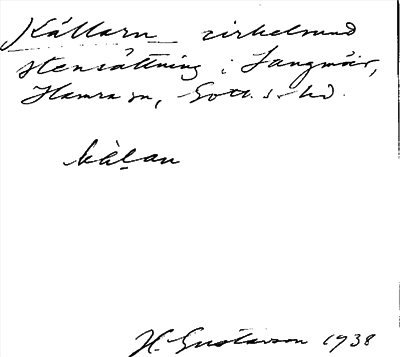 Källarn cirkelrund
stensättning i Langmöir,
Hamra sn, Gotl. s. hd.
kàḷan
H. Gustavson 1938